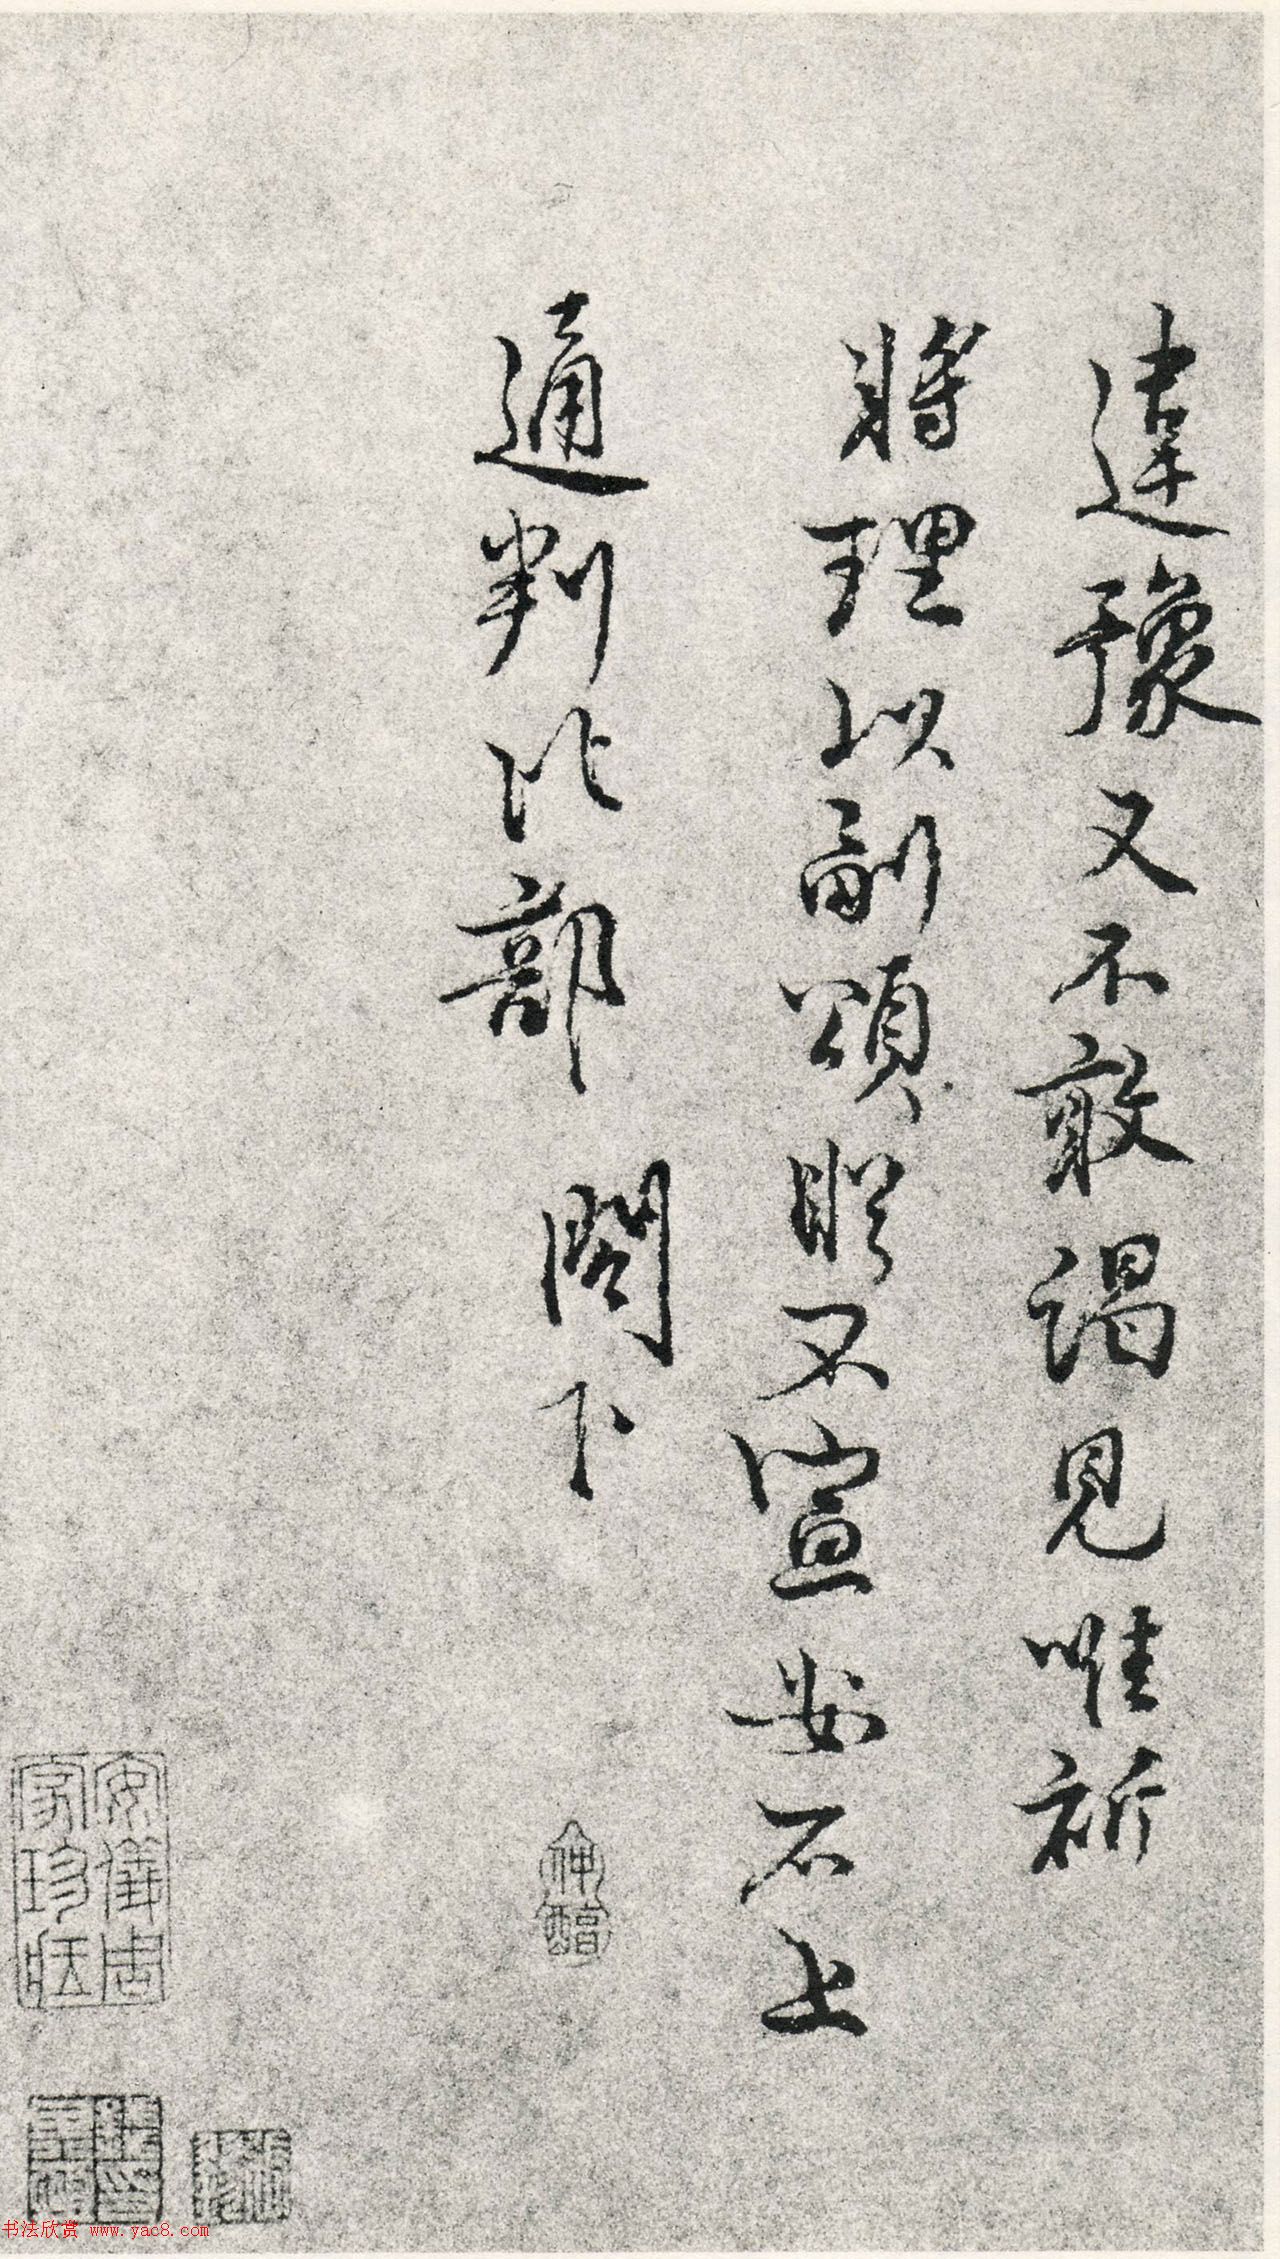 違豫又不敢謁見唯祈
將理以副頌眡不宣安石上
通判比部 閤下
仲醇
安儀周家珍藏
书法欣赏 www.yac8.com